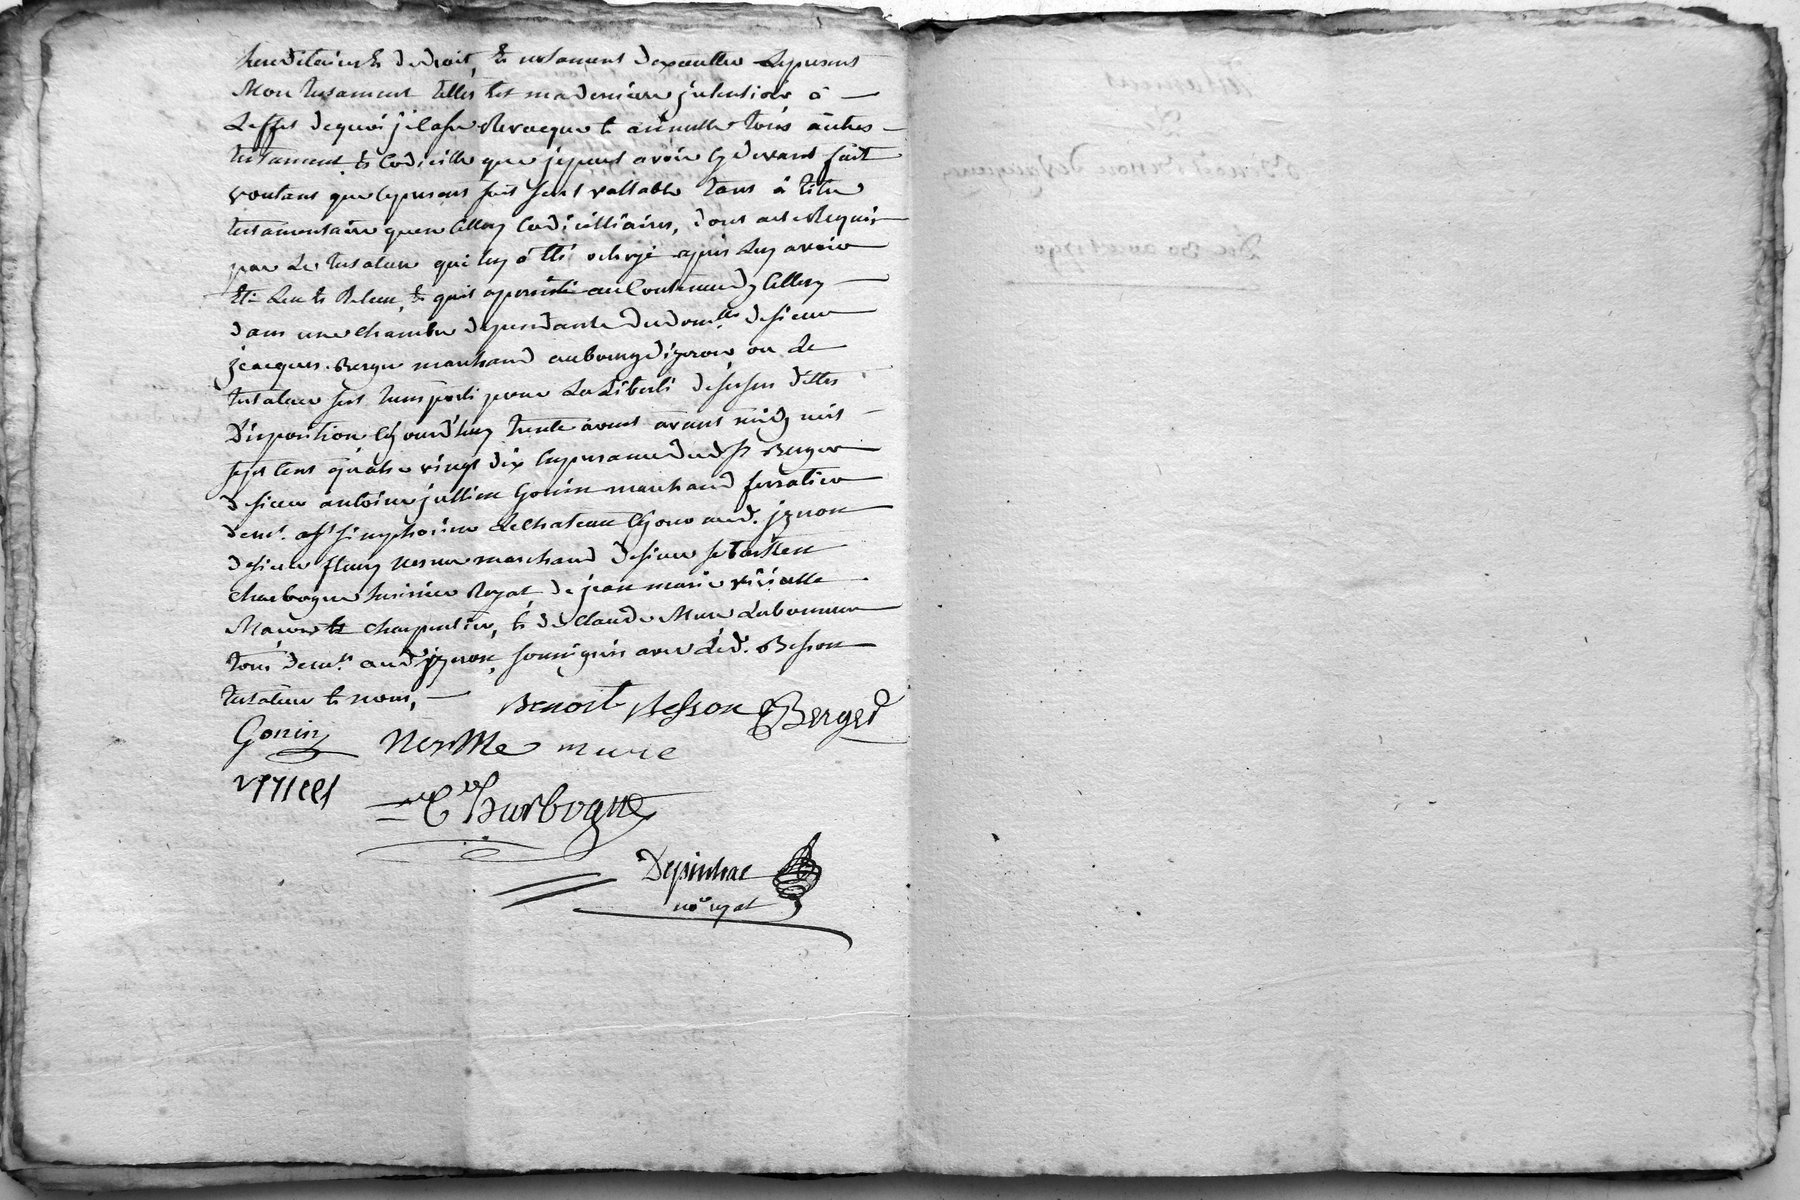 hereditaires de droit, et notament d'exécutter le present
Mon testament telles est ma derniere jntention à
l'effet de quoi je casse revocque et annulle tous autres
testament et codicille que je peut avoir cy devant fait
voulant que le present soit seul vallable tant à titre
testamentaire qu'en celluy codicilliaires, dont acte requis
par le testateur qui luy à été octroyé apres luy avoir
été leu et releu, et qu'il a persisté au contenu d'ycelluy
dans une chambre dependante du dom.lle de sieur
jacques Berger marchand au bourg d'izeron, ou le
testateur s'est transporté pour la liberté de ses sus dittes
disposition cejourd'huy trente aoust avant midy mil
sept cent quatre vingt dix en presence dud. sr Berger
de sieur antoine jullien Gonin marchand ferratier
dem.t a st simphorien le chateau, ce jour aud. jzeron
de sieur fleury nesme marchand de sieur
Charbogne huissier Royal de jean marie viricelle
Maitre charpentier, et de Claude Mure laboureur
tous dem.ts aud. jzeron, soussignés avec led. Besson
testateur et nous,
Benoit Besson Berger
Gonin Nesme mure
viricel
Charbogne
Depinhac
no.re royal
Testament
De
Benoit Besson
Du 30 aoust 1790